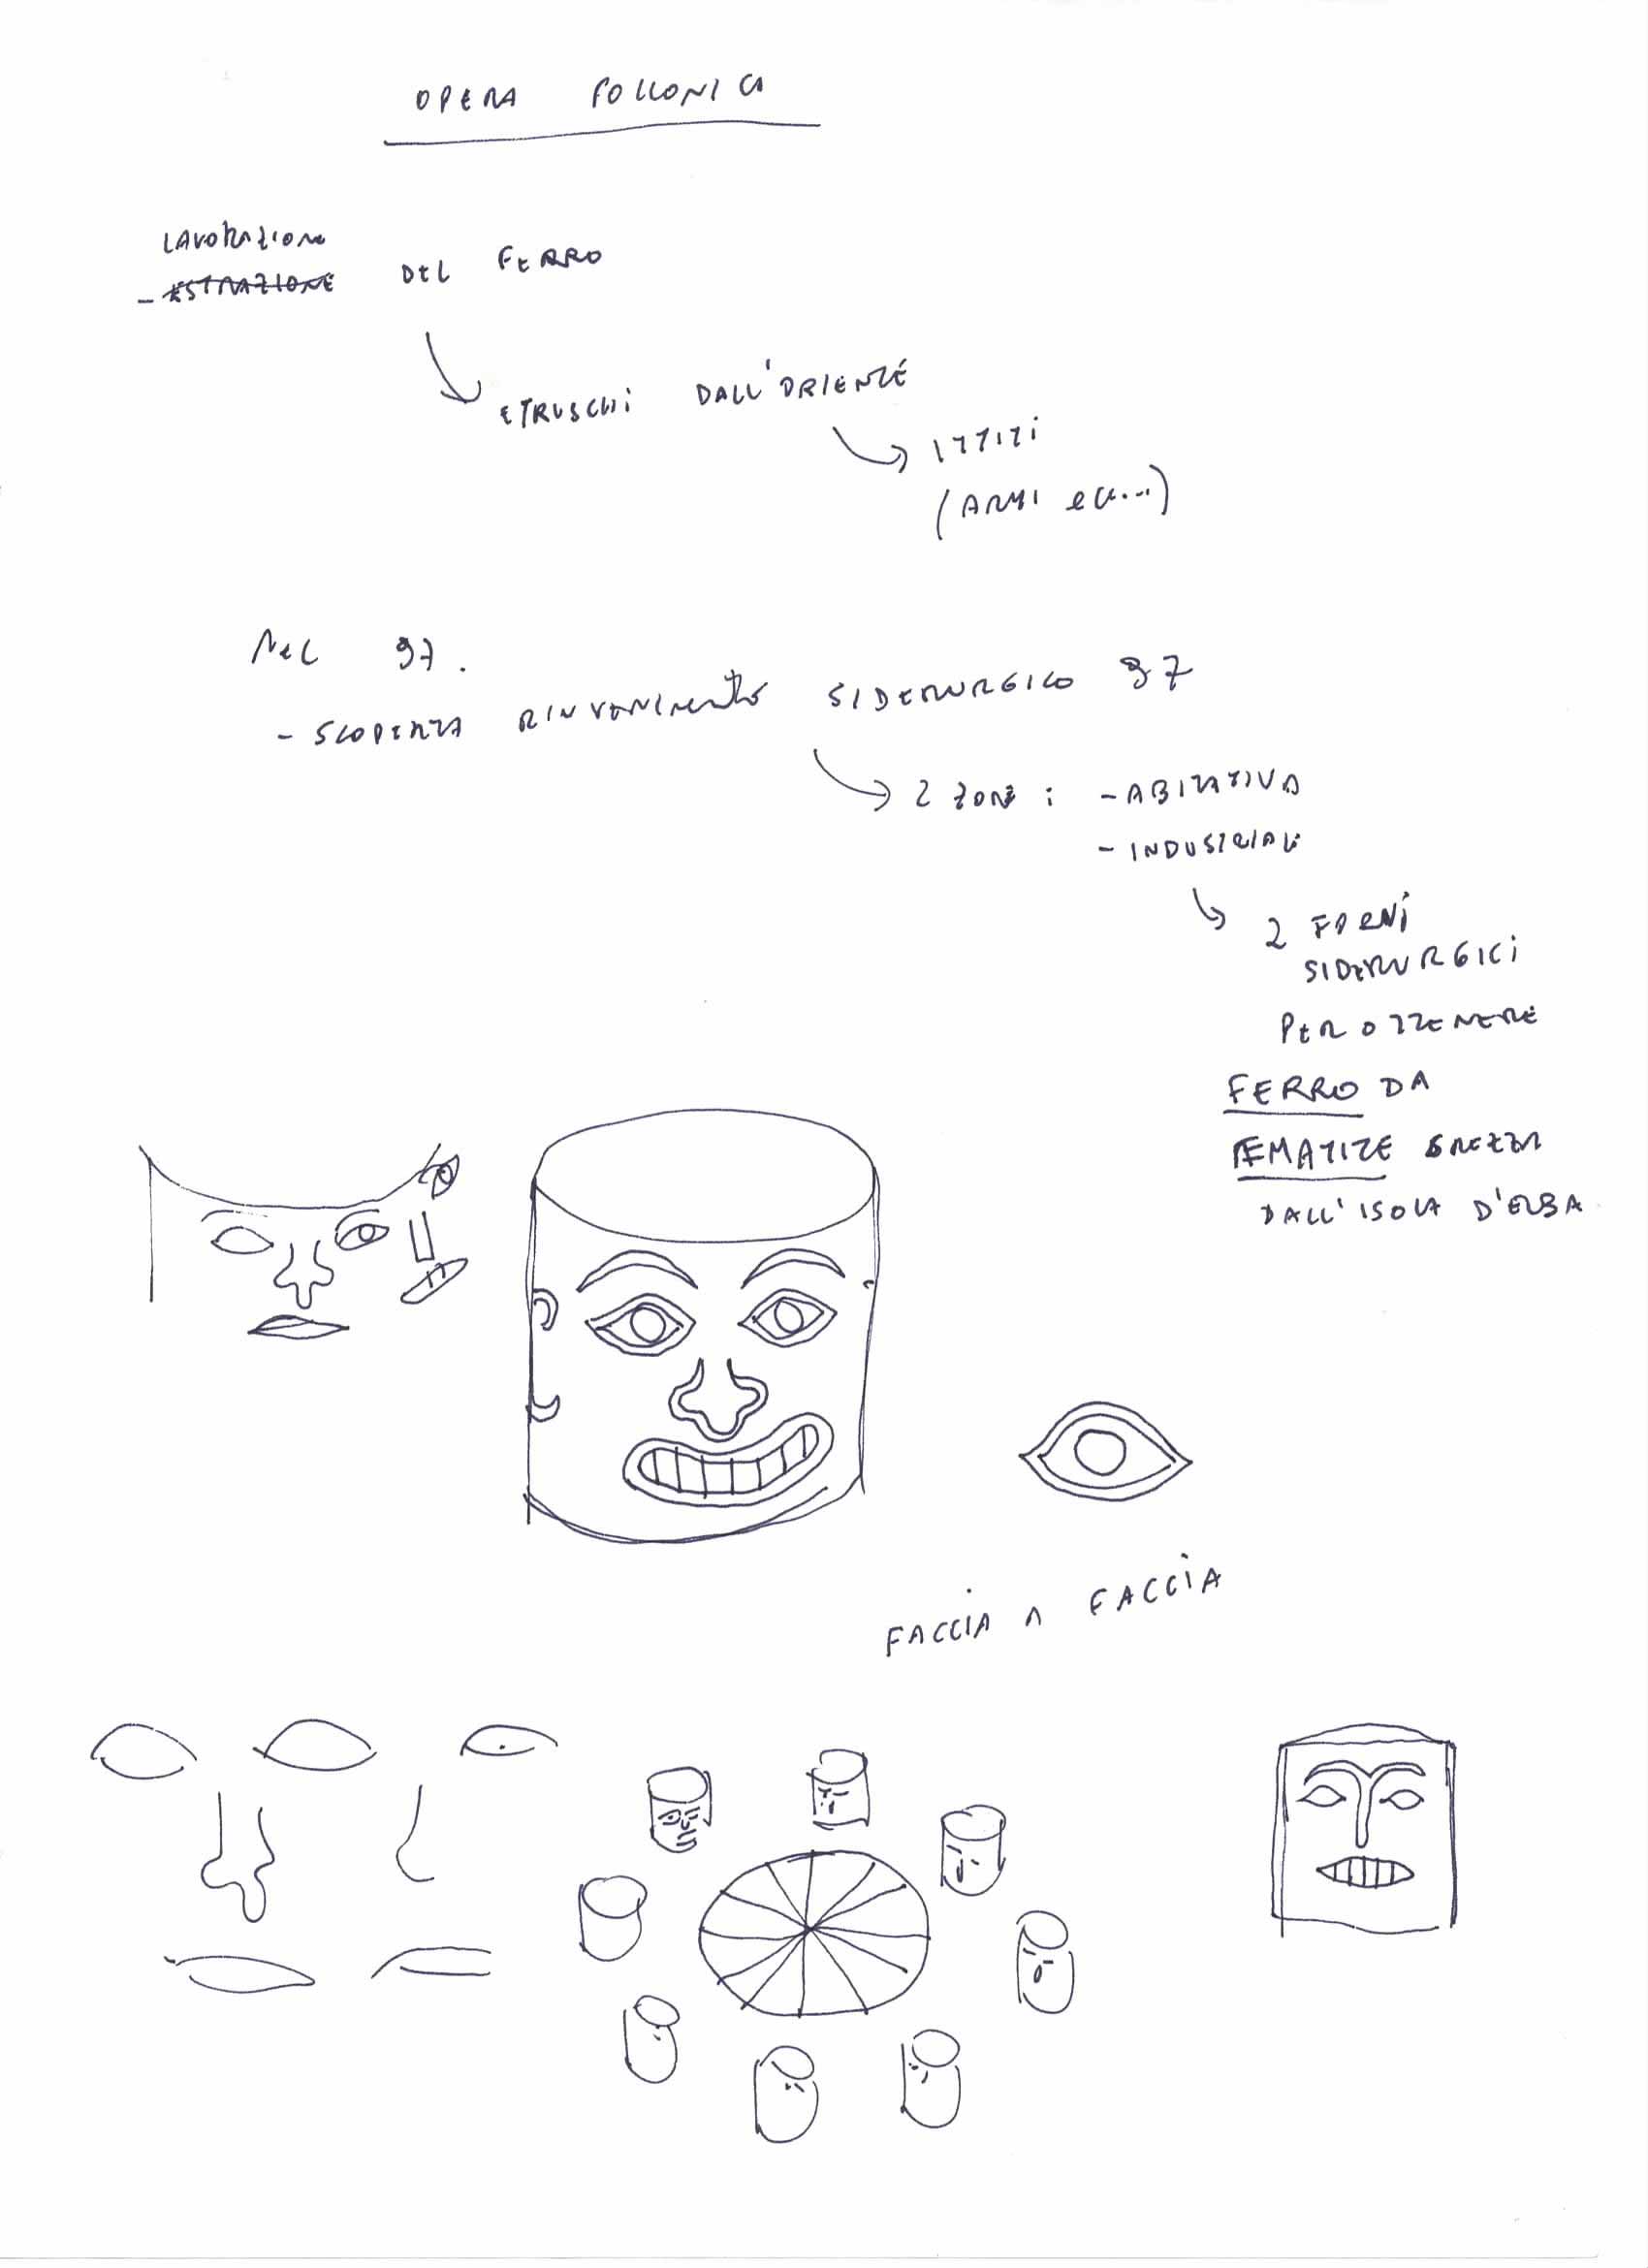 OPERA FOLLONICA
LAVORAZIONE
- ESTRAZIONE DEL FERRO
ETRUSCHI DALL'ORIENTE
ITTITI
(ARMI ecc...)
NEL 97.
- SCOPERTA RINVENIMENTO SIDERURGICO 97
2 ZONE : - ABITATIVA
- INDUSTRIALE
2 FORNI
SIDERURGICI
PER OTTENERE
FERRO DA
EMATITE GREZZA
DALL'ISOLA D'ELBA
FACCIA A FACCIA